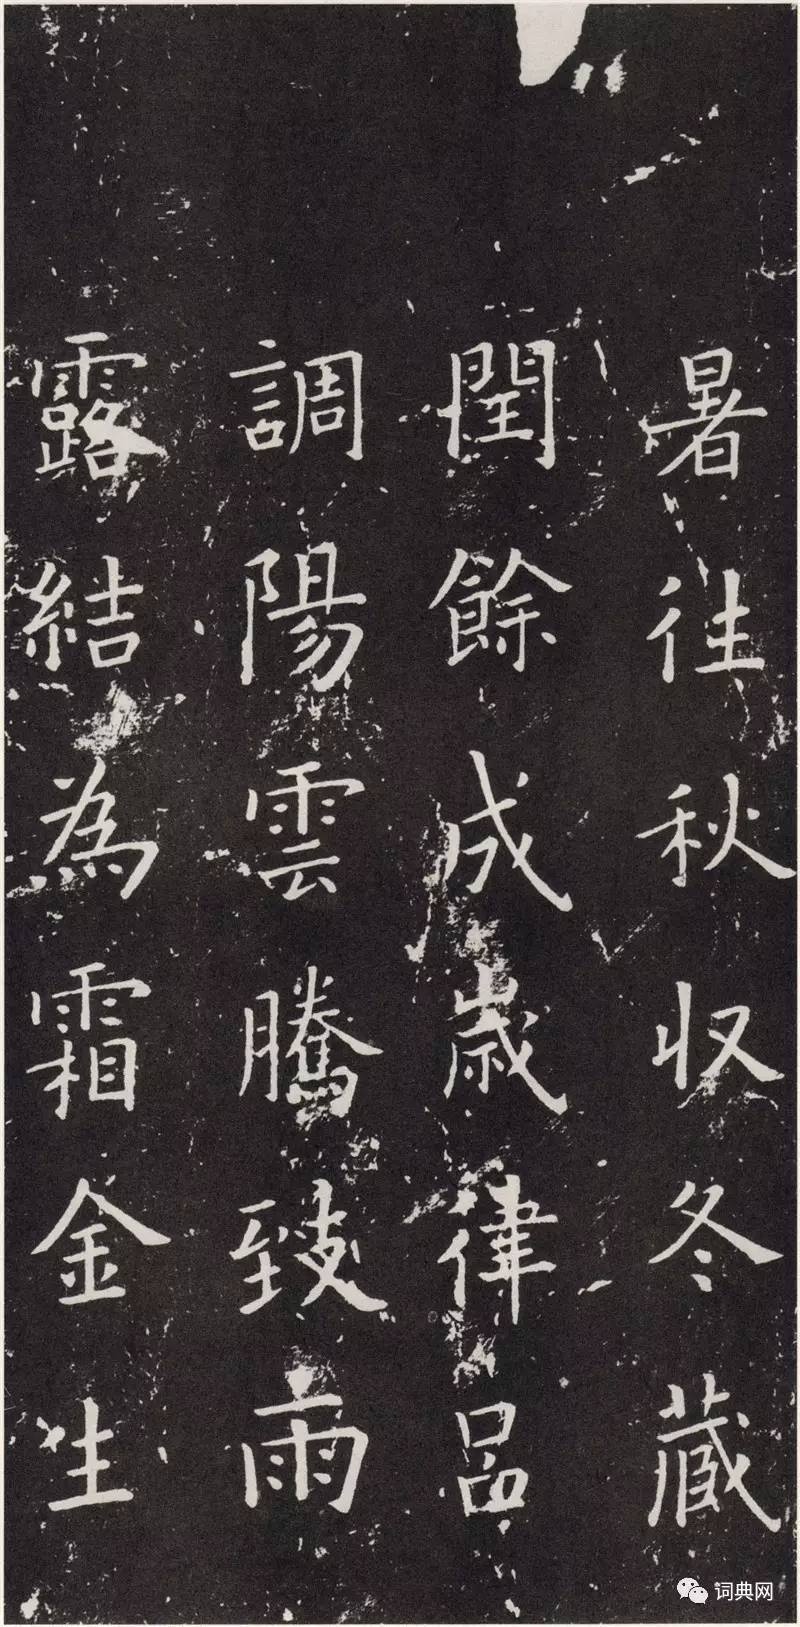 暑往秋収冬藏
閏餘成歲律呂
調陽雲騰致雨
露結為霜金生
词典网